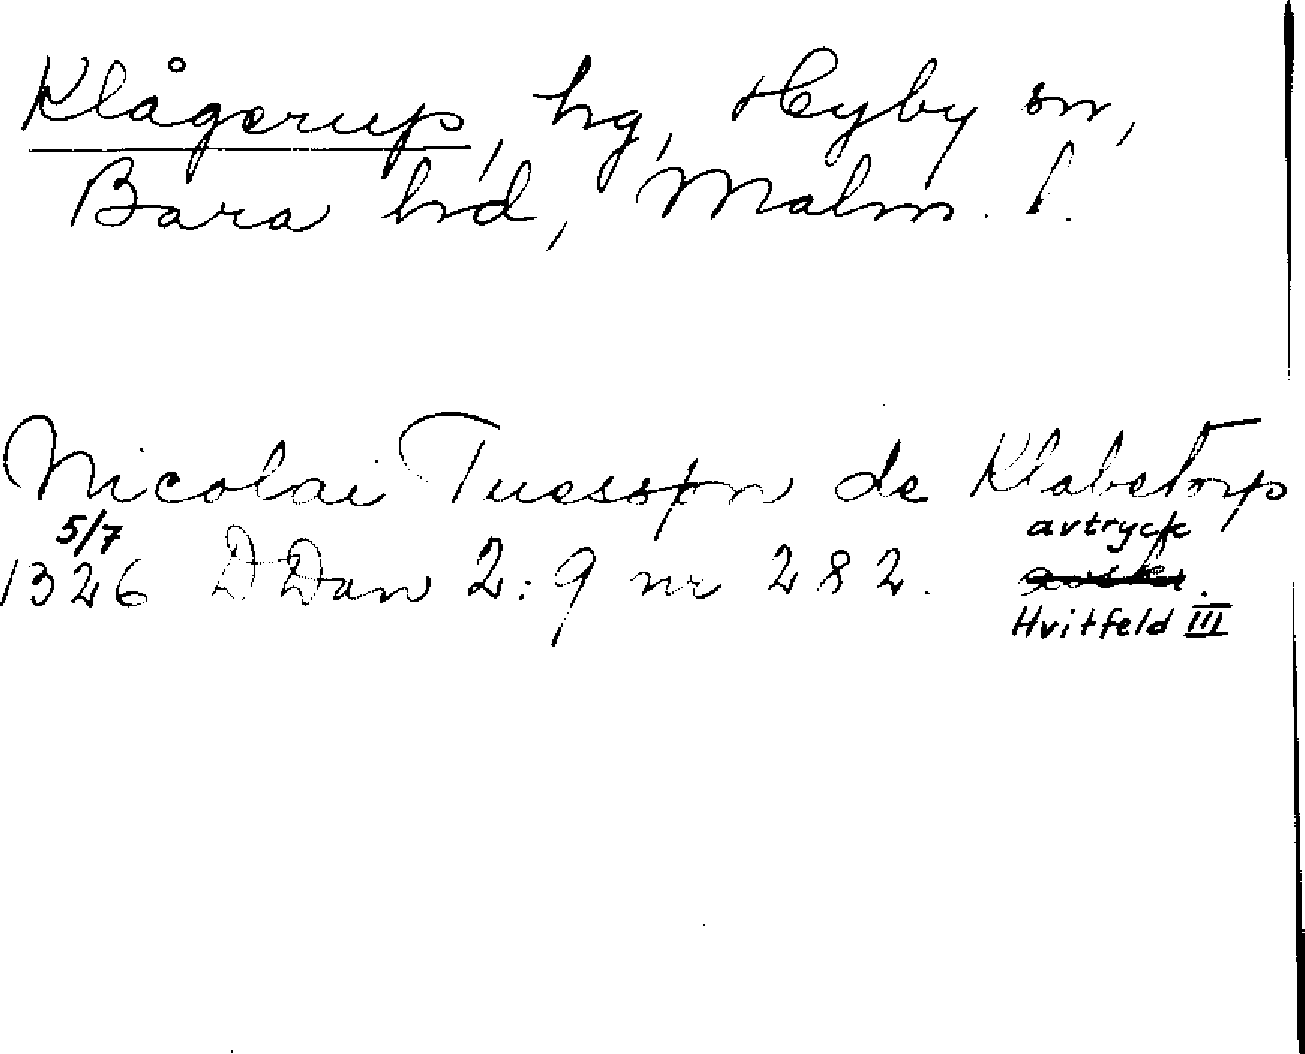 Klågerup, hg, Hyby sn,
Bara hd, Malm. l.
Nicolai Tuessøn de Klabetorp
5/7 avtryck
1326 DDan 2:9 nr 282.
Hvitfeld III